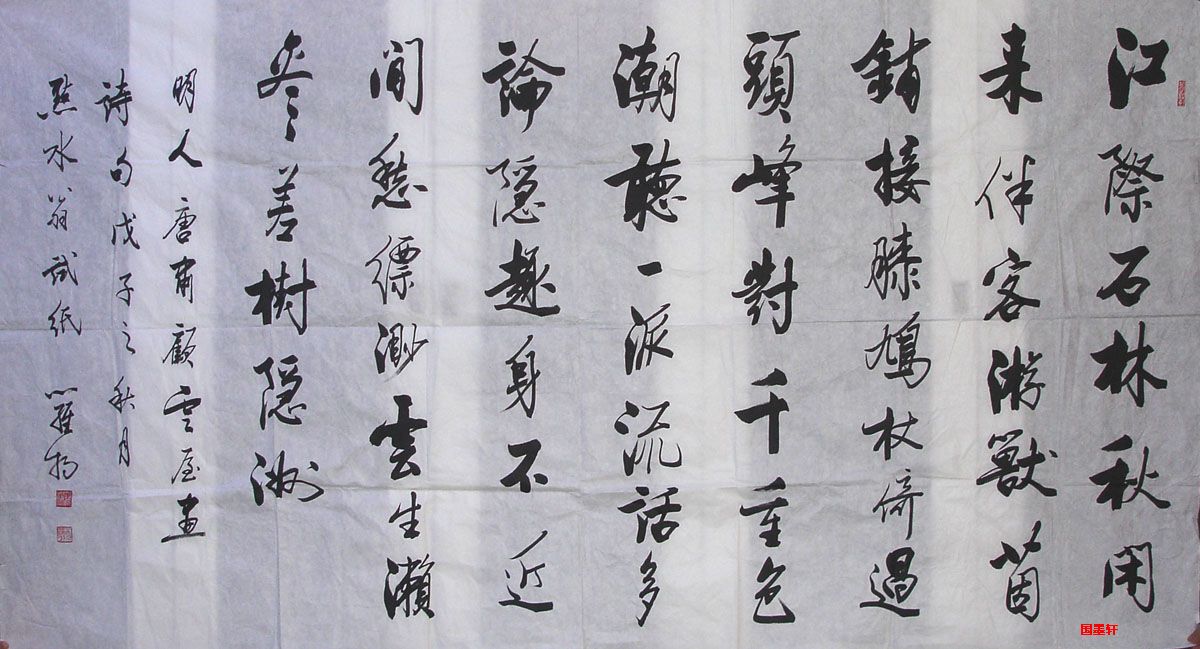 江際石林秋閑
来伴客游獸茵
鋪接膝鳩杖倚過
頭峰對千重色
潮聽一派流話多
論隱趣身不近
閒愁縹渺雲生瀨
參差樹隱洲
明人唐肅顧雲屋畫
詩句戊子之秋月
點水翁試紙 羅楊
国墨轩